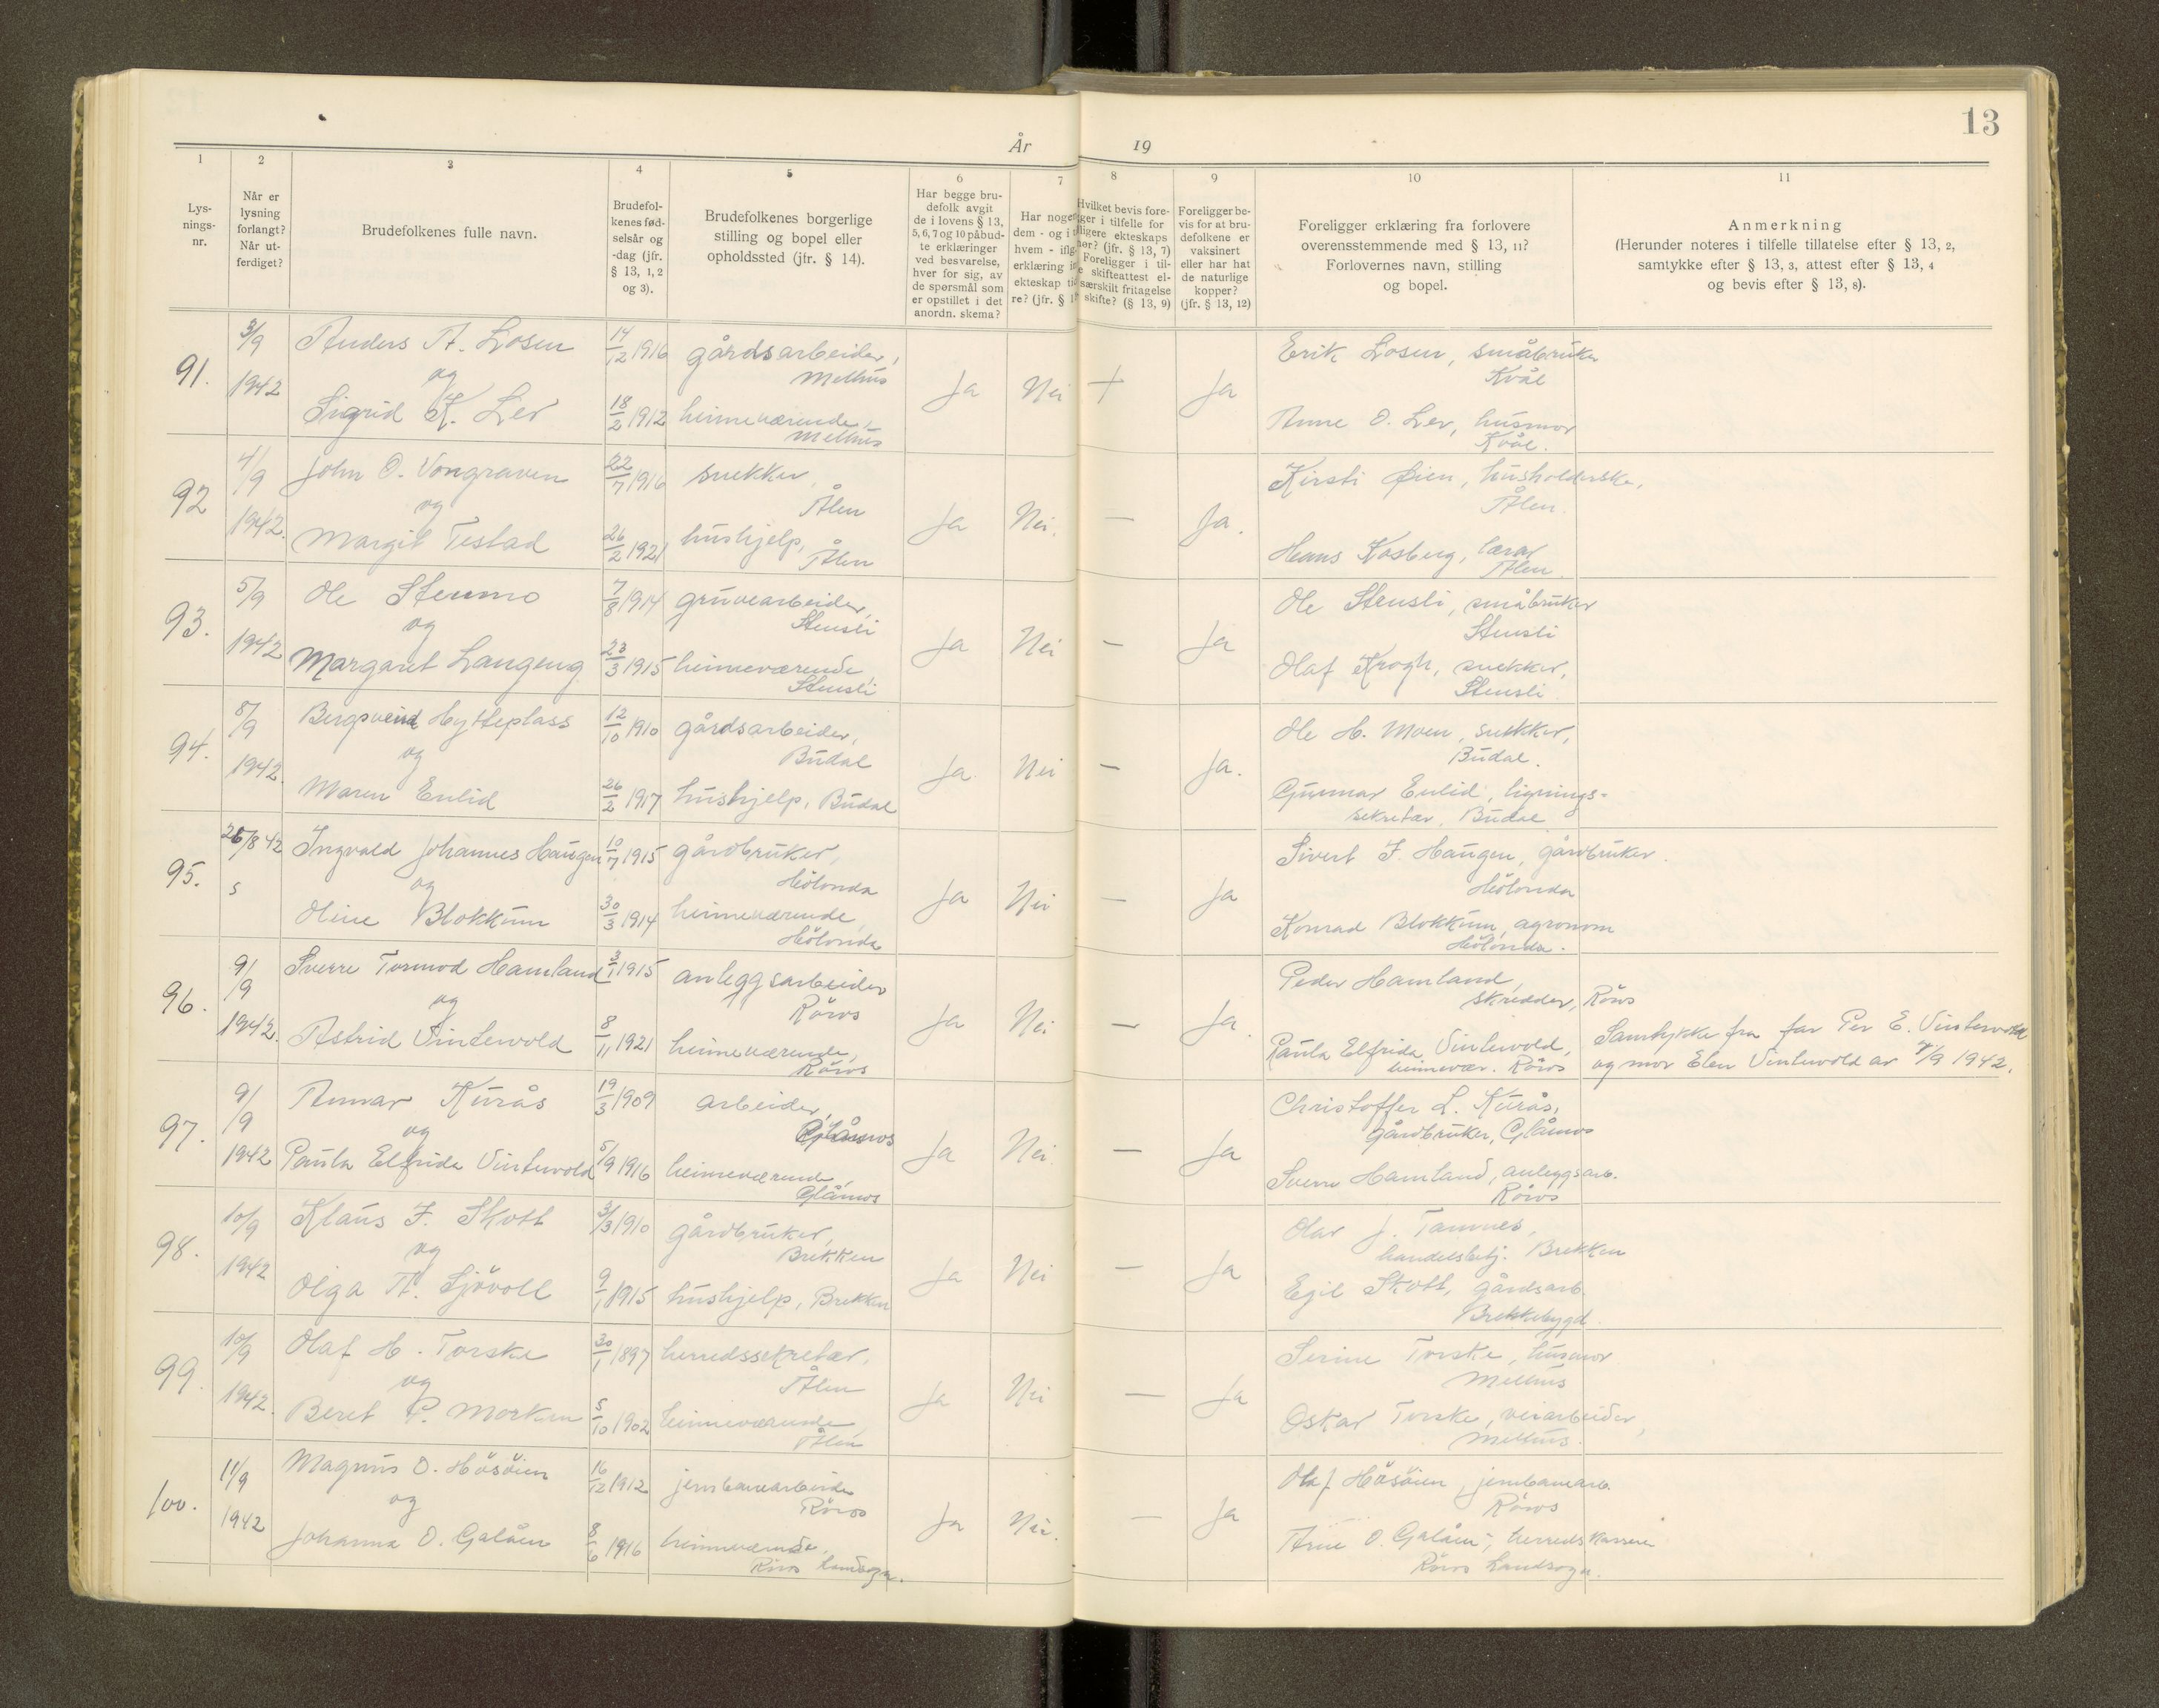 13
År 19
1 2 3 4 5 6 7 8 9 10 11
Lys-
nings-
nr.
Når er
lysning
forlangt?
Når ut-
ferdiget?
Brudefolkenes fulle navn.
Brudefol-
kenes fød-
selsår og
-dag (jfr.
§ 13, 1, 2
og 3).
Brudefolkenes borgerlige
stilling og bopel eller
opholdssted (jfr. § 14).
Har begge bru-
defolk avgit
de i lovens § 13,
5, 6, 7 og 10 påbud-
te erklæringer
ved besvarelse,
hver for sig, av
de spørsmål som
er opstillet i det
anordn. skema?
Har nogen
dem - og i t
hvem - iflg.
erklæring in
ekteskap tid
re? (jfr. § 1
Hvilket bevis fore-
ger i tilfelle for
lligere ekteskaps
hør? (jfr. § 13, 7)
Foreligger i til-
e skifteattest el-
særskilt fritagelse
skifte? (§ 13, 9)
Foreligger be-
vis for at bru-
defolkene er
vaksinert
eller har hat
de naturlige
kopper?
(jfr. § 13, 12)
Foreligger erklæring fra forlovere
overensstemmende med § 13, 11?
Forlovernes navn, stilling
og bopel.
Anmerkning
(Herunder noteres i tilfelle tillatelse efter § 13, 2,
samtykke efter § 13, 3, attest efter § 13, 4
og bevis efter § 13, 8).
91. 3/9 1942 Anders A. Losen 14/12 1916 gårdsarbeider,
Melhus
og
Sigrid K. Ler 18/2 1912 heimeværende,
Melhus
Ja Nei + Ja
Erik Losen, småbruker
Kvål
Anne O. Ler, husmor
Kvål.
92 4/9 1942. John O. Vongraven 22/7 1916 snekker,
Ålen
og
Margit Testad 26/2 1921 hushjelp,
Ålen
Ja Nei. — Ja.
Kirsti Øien, husholderske,
Ålen.
Hans Kosberg, lærar
Ålen.
93. 5/9 1942 Ole Stenmo 7/8 1914 gruvearbeider,
Stensli
og
Margaret Langeng 23/3 1915 heimeværende,
Stensli
Ja Nei — Ja
Ole Stensli, småbruker
Stensli
Olaf Krogh, snekker,
Stensli.
94. 8/9 1942. Bergsveind Hytteplass 12/10 1910 gårdsarbeider,
Budal
og
Maren Enlid 26/2 1917 hushjelp, Budal
Ja Nei — Ja.
Ole H. Moen, snekker,
Budal.
Gunnar Enlid, lignings-
sekretær, Budal
95. 26/8 42 s Ingvald Johannes Haugen 10/7 1915 gårdbruker,
Hölonda
og
Oline Blokkum 30/3 1914 heimeværende,
Hölonda
Ja Nei — Ja
Sivert J. Haugen, gårdbruker.
Hölonda
Konrad Blokkum, agronom
Hölonda.
96. 9/9 1942. Sverre Tormod Hamland 3/1 1915 anleggsarbeider
Röros
og
Astrid Vintervold 8/11 1921 heimeværende,
Röros
Ja Nei — Ja.
Peder Hamland,
skredder, Röros
Paula Elfrida Vintervold,
heimevær. Röros
Samtykke fra far Per E. Vintervold
og mor Elen Vintervold av 7/9 1942.
97. 9/9 1942 Annar Kurås 19/3 1909 arbeider,
Glåmos
og
Paula Elfrida Vintervold 5/9 1916 heimeværende,
Glåmos
Ja Nei. — Ja
Christoffer L. Kurås,
gårdbruker, Glåmos
Sverre Hamland, anleggsarb.
Röros
98. 10/9 1942 Klaus J. Skott 31/3 1910 gårdbruker,
Brekken
og
Olga A. Sjövoll 9/1 1915 hushjelp, Brekken
Ja Nei — Ja
Olav J. Tamnes,
handelsbetj. Brekken
Egil Skott, gårdsarb.
Brekkebygd.
99. 10/9 1942. Olaf H. Torske 30/1 1897 herredssekretær,
Ålen
og
Beret P. Morken 5/10 1902 heimeværende,
Ålen
Ja Nei — Ja
Serine Torske, husmor
Melhus
Oskar Torske, veiarbeider,
Melhus.
100. 11/9 1942 Magnus O. Hösöien 16/12 1912 jernbanearbeider
Röros
og
Johanna O. Galåen 8/6 1916 heimeværende,
Röros landsogn.
Ja Nei. — Ja
Olaf Hösöien, jernbanearb.
Röros
Arne O. Galåen, herredskasserer
Röros Landsogn.